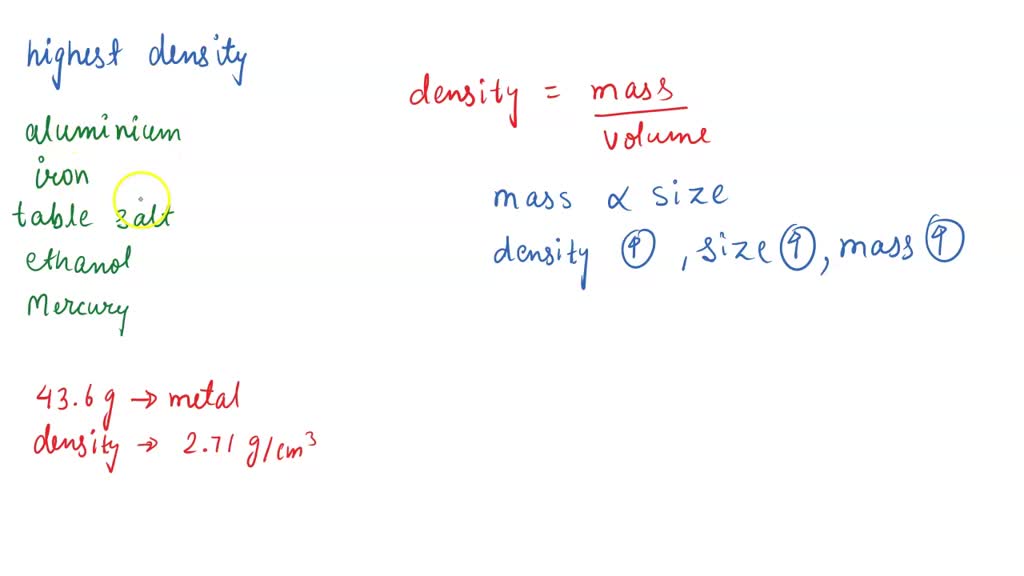 highest density
aluminium
iron
table salt
ethanol
Mercury
43.6 g → metal
density → 2.71 g/cm³
density = mass / volume
mass ∝ size
density ↑, size ↑, mass ↑